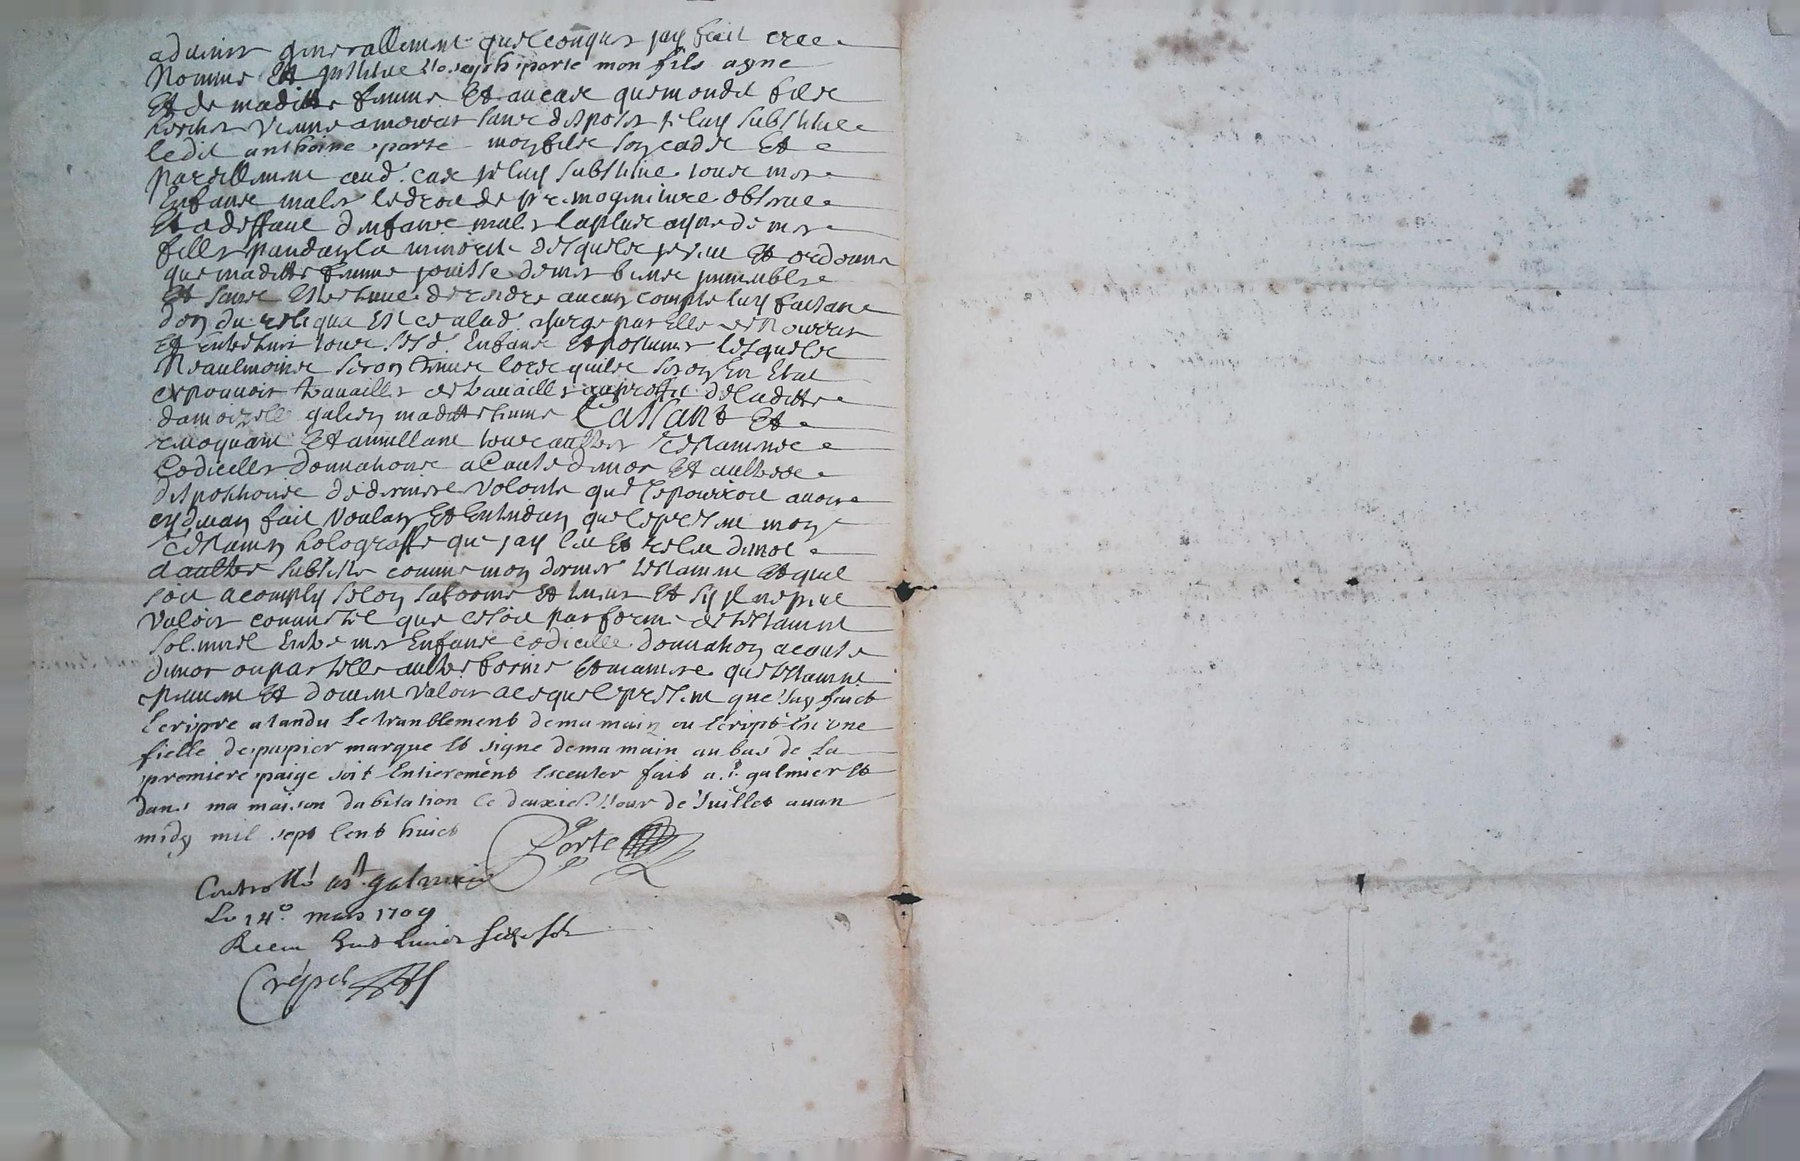 advenir generallement quelconques jay fait cree
Nomme Et institue Joseph porte mon fils ayne
Et de maditte femme Et au cas que mondit fils
heritier vienne a mourir sans disposer je luy substitue
ledit anthoine porte mon fils son cadet Et
pareillement aud. cas je luy substitue tous mes
Enfans males le droit de primogeniture observe
Et a deffaut denfans males la plus aynee de mes
filles pandan la minorite desquels je veu Et ordonne
que maditte femme jouisse de mes biens immeubles
Et sans Estre tenue de rendre aucun compte luy faisant
don du reliqua Et ce a la d. charge par Elle de Nourrir
Et entretenir tous sesd. Enfans Et postumes lesquels
Neaulmoins seron tenus lors quils seron En Etat
et pouvoir travailler de travailler au proffit de laditte
damoizelle galien maditte femme Cassant Et
revoquant Et annullant tous aultres testamens
Codicilles donnations a Cause de mort Et aultres
dispositions de derniere volonte que je pourrois avoir
cy devan fait voulan Et Entendan que le present mon
testamen holograffe que jay leu Et releu de mot
a aultre subsiste comme mon dernier testament Et quil
soit acomply selon sa forme Et teneur Et sy il ne peut
valoir comme tel que ce soit par forme de testament
solemnel Entre mes Enfans codicille donnation a cause
de mort ou par telle aultre forme Et maniere que testament
peuvent Et doivent valoir a lequel present que Jay faict
Ecripre atandu Le tranblement de ma main ou Ecript En une
fielle de papier marque Et signe de ma main au bas de La
premiere paige soit Entierement Executer fait a St. galmier Et
dans ma maison dabitation le deuxie. Jour de Juillet avan
midy mil sept Cent huict
Porte
Controllé a St. galmier
Le 14e. mars 1709
Receu
Crépet